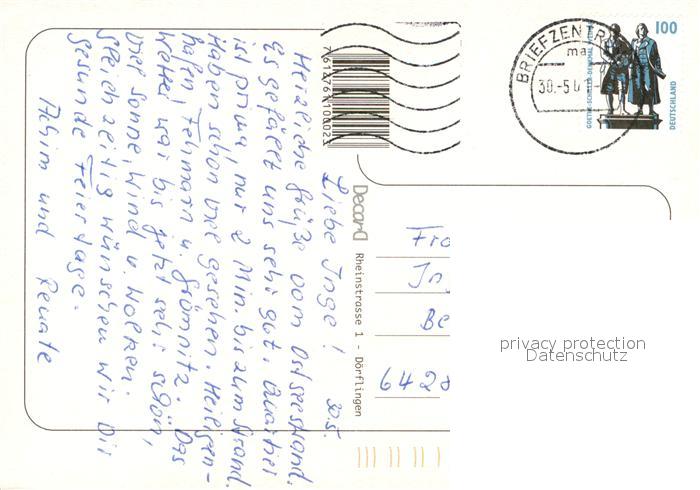 30.5.
Liebe Inge!
Herzliche Grüße vom Ostseestrand.
Es gefällt uns sehr gut. Quartier
ist prima, nur 2 Min. bis zum Strand.
Haben schon viel gesehen. Heiligen-
hafen, Fehmarn u. Grömnitz. Das
Wetter war bis jetzt sehr schön,
viel Sonne, Wind u. Wolken.
Gleichzeitig wünschen wir Dir
gesunde Feiertage.
Achim und Renate
7612761100023
Decard
Rheinstrasse 1 - Dörflingen
BRIEFZENTR
ma
30.-5.
100
GOETHE-SCHILLER-DENKMAL
DEUTSCHLAND
Fra
In
Be
6428
privacy protection
Datenschutz